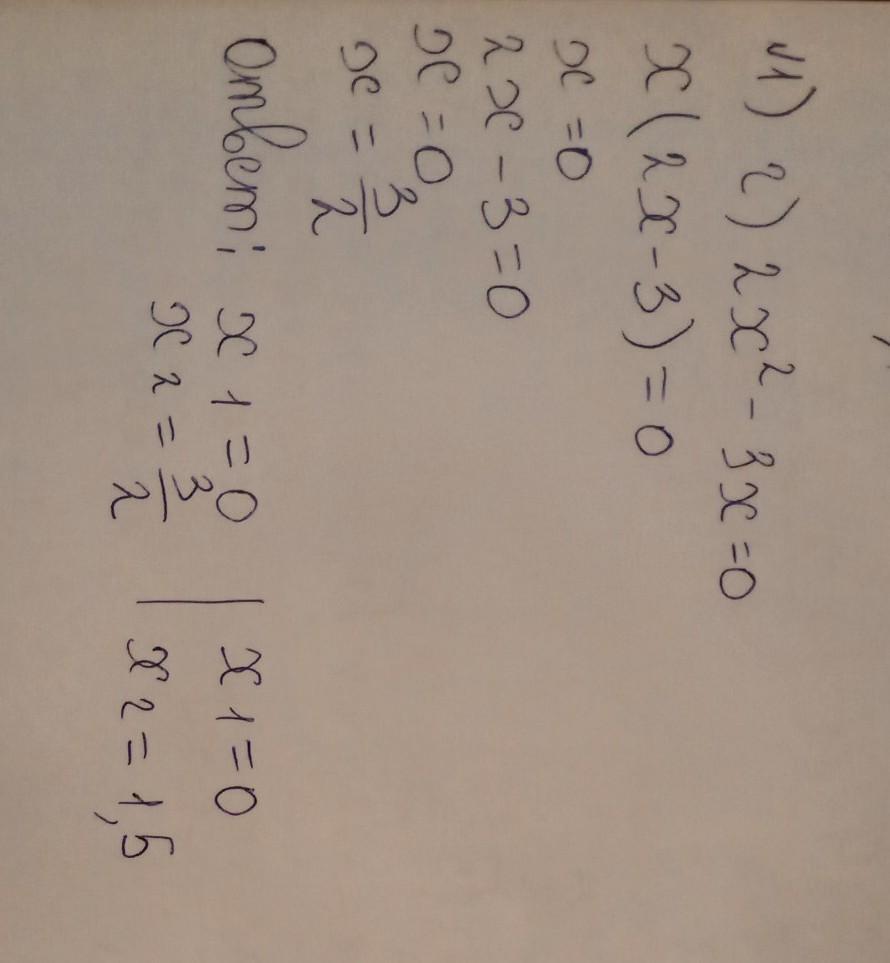 №1) 2) 2x² - 3x = 0
x(2x - 3) = 0
x = 0
2x - 3 = 0
x = 0
x = 3/2
Ответ: x1 = 0 | x1 = 0
x2 = 3/2 | x2 = 1,5